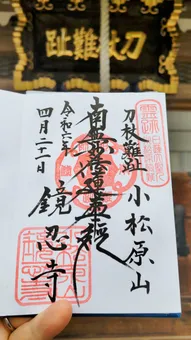 刀杖難趾
刀杖難趾
小松原山
南無妙法蓮華経
鏡忍寺
令和六年
四月二十一日